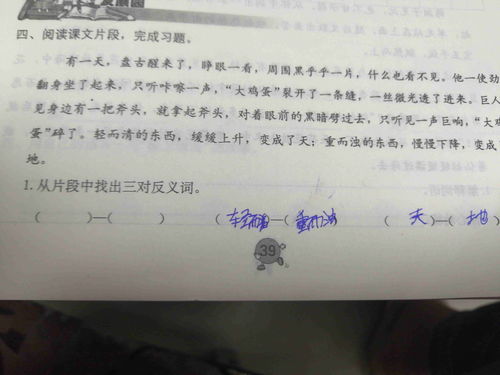 发展园
四、阅读课文片段，完成习题。
有一天，盘古醒来了，睁眼一看，周围黑乎乎一片，什么也看不见。他一使劲
翻身坐了起来，只听咔嚓一声，“大鸡蛋”裂开了一条缝，一丝微光透了进来。巨人
见身边有一把斧头，就拿起斧头，对着眼前的黑暗劈过去，只听见一声巨响，“大鸡
蛋”碎了。轻而清的东西，缓缓上升，变成了天；重而浊的东西，慢慢下降，变成
地。
1.从片段中找出三对反义词。
（ ）—（ ） （轻而清）—（重而浊） （天）—（地）
39